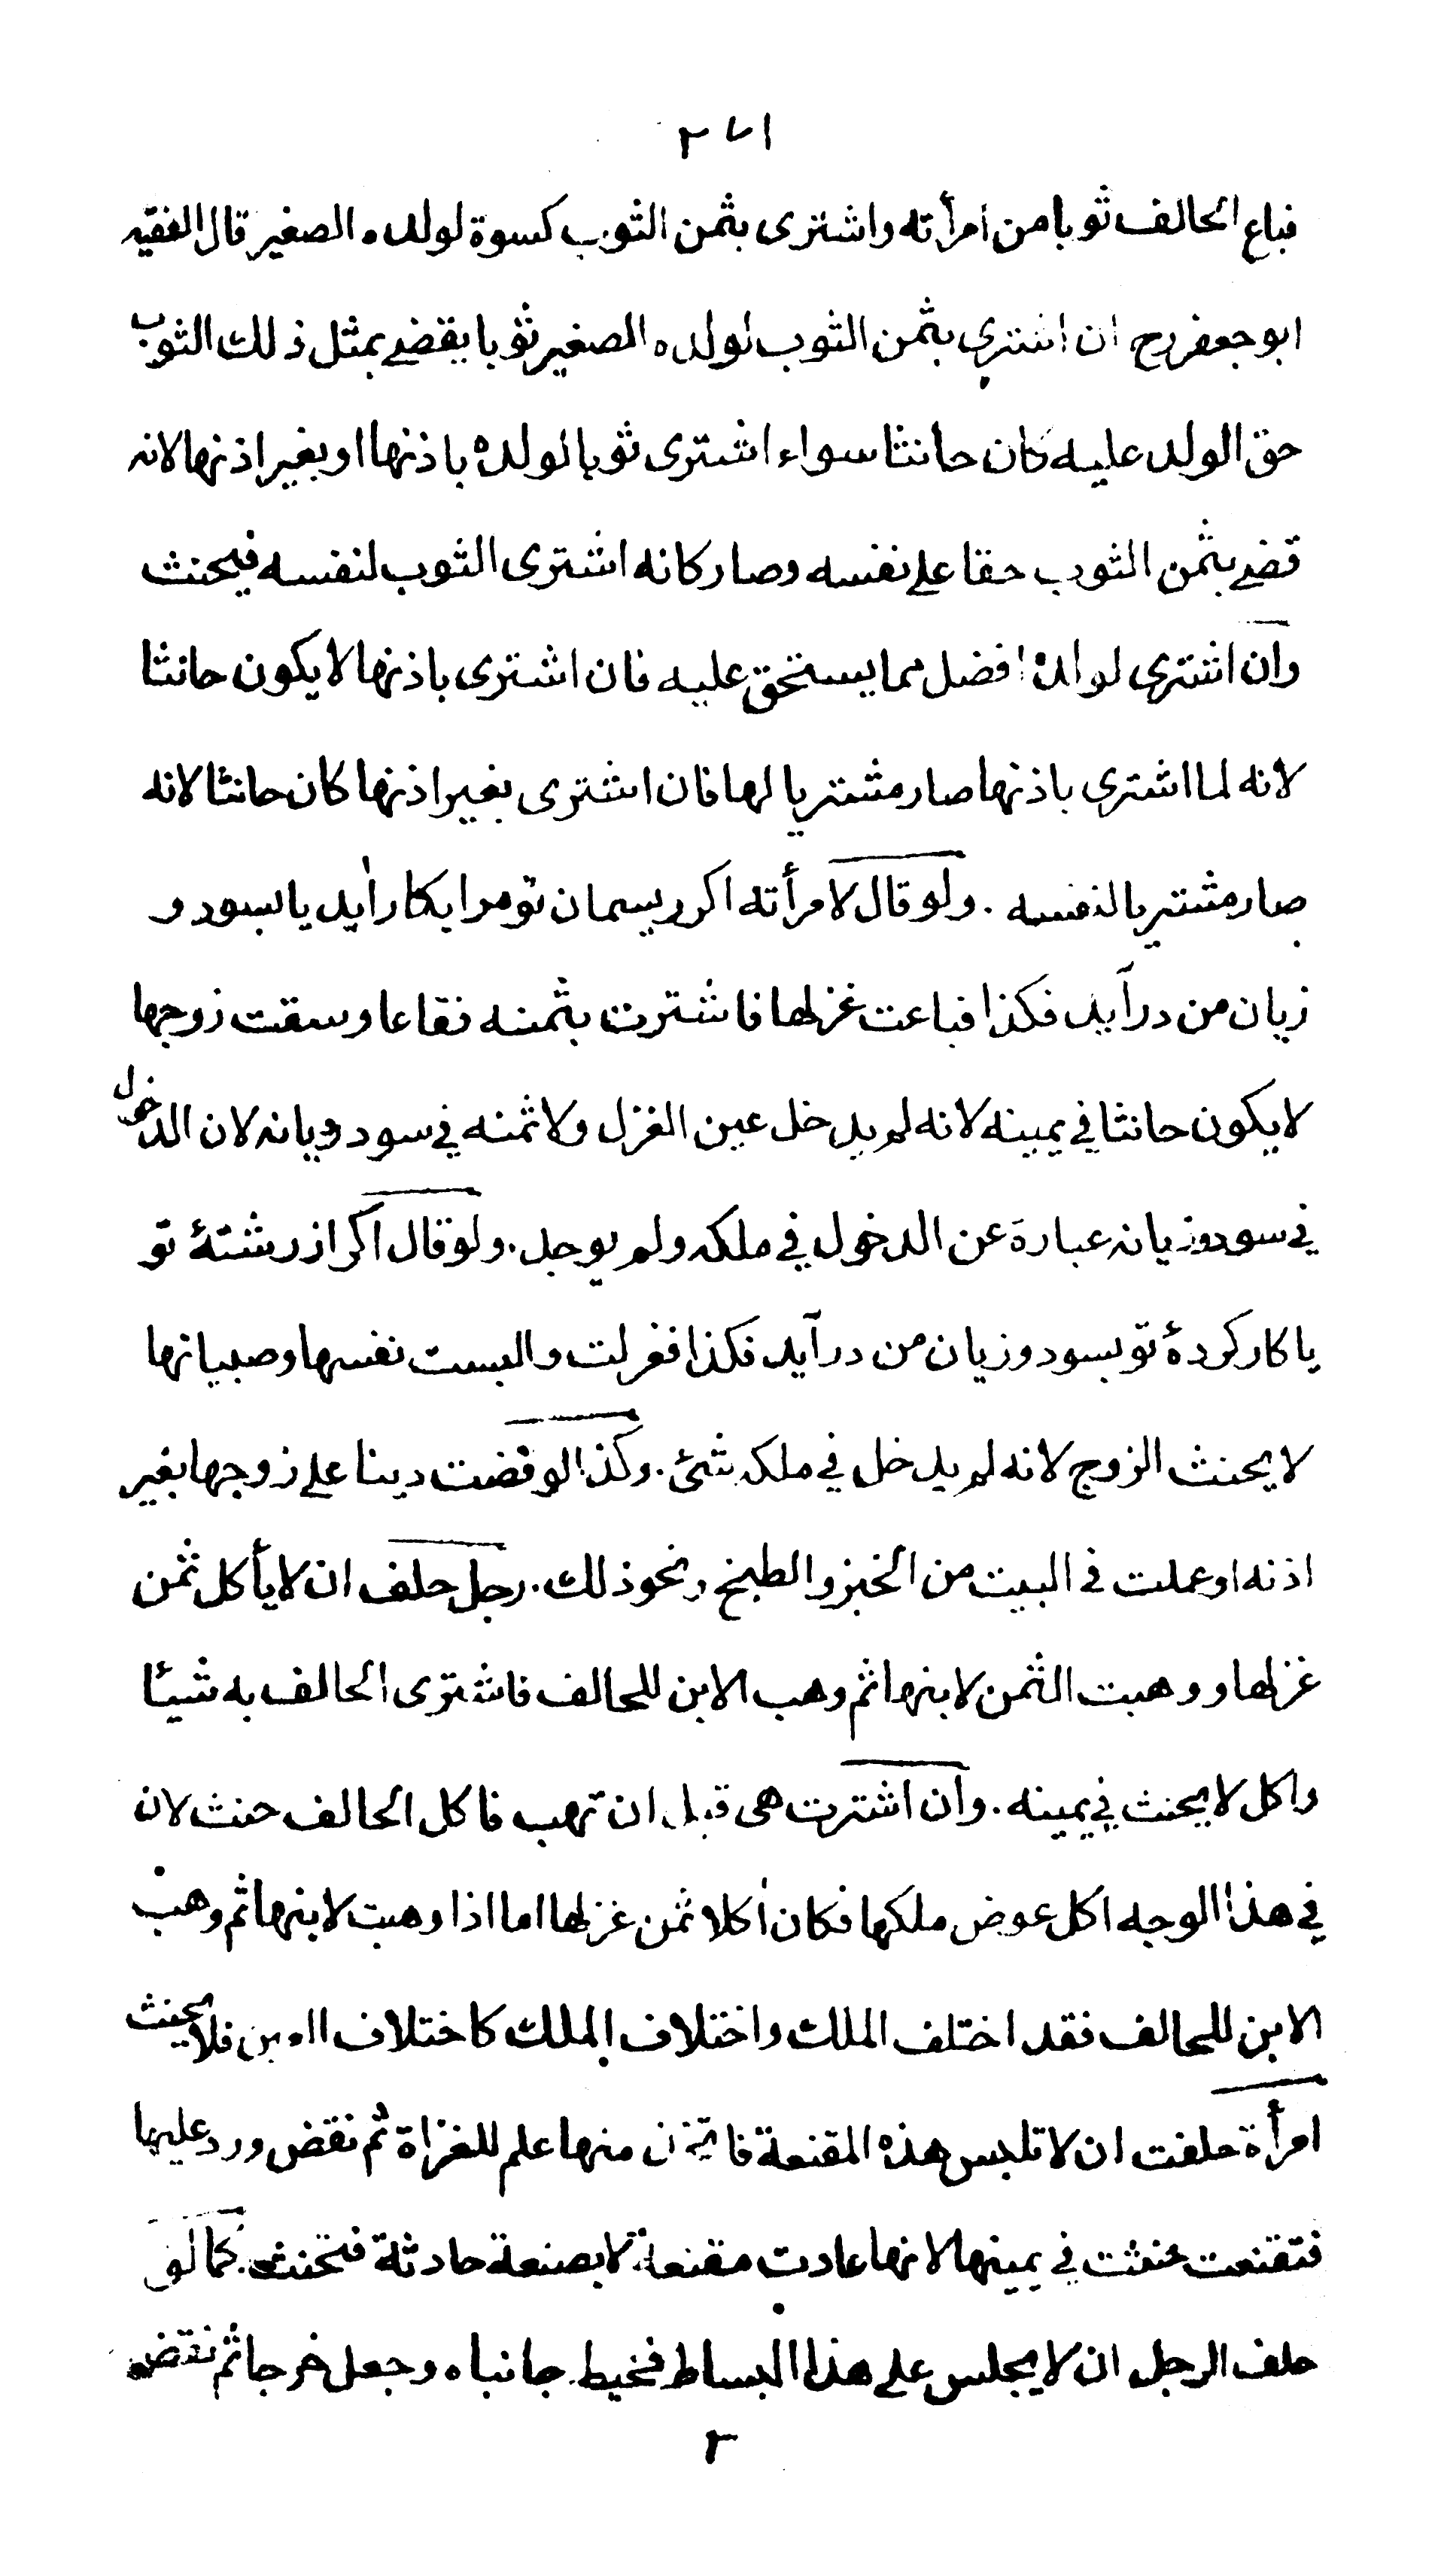 ٢٧١
فباع الحالف ثوبا من امرأته واشترى بثمن الثوب كسوة لولده الصغير قال الفقيه
ابو جعفر رح ان اشترى بثمن الثوب لولده الصغير ثوبا يقضے بمثل ذلك الثوب
حق الولد عليه كان حانثا سواء اشترى ثوبا لولده باذنها او بغير اذنها لانه
قضے بثمن الثوب حقا علے نفسه وصار كانه اشترى الثوب لنفسه فيحنث
وان اشترى لولده افضل مما يستحق عليه فان اشترى باذنها لا يكون حانثا
لانه لما اشترى باذنها صار مشتريا لها فان اشترى بغير اذنها كان حانثا لانه
صار مشتريا لنفسه . ولو قال لامرأته اكر ريسمان تو مرا بكار آيد يا بسود و
زيان من درآيد فكذا فباعت غزلها فاشترت بثمنه فقاعا وسقت زوجها
لا يكون حانثا في يمينه لانه لم يدخل عين الغزل ولا ثمنه في سود وزيانه لان الدخول
في سود وزيانه عبارة عن الدخول في ملكه ولم يوجد . ولو قال اكر از رشتۀ تو
يا كار كردۀ تو بسود وزيان من درآيد فكذا فغزلت والبست نفسها وصبيانها
لا يحنث الزوج لانه لم يدخل في ملكه شئ . وكذا لو قضت دينا علے زوجها بغير
اذنه او عملت فى البيت من الخبز والطبخ ونحو ذلك . رجل حلف ان لا يأكل ثمن
غزلها ووهبت الثمن لابنها ثم وهب الابن للحالف فاشترى الحالف به شيئا
واكل لا يحنث في يمينه . وان اشترت هى قبل ان تهب فاكل الحالف حنث لان
في هذا الوجه اكل عوض ملكها فكان آكلا ثمن غزلها اما اذا وهبت لابنها ثم وهب
الابن للحالف فقد اختلف الملك واختلاف الملك كاختلاف العين فلا يحنث
امرأة حلفت ان لا تلبس هذه المقنعة فاتخذ منها علم للغزاة ثم نقض ورد عليها
فتقنعت حنثت في يمينها لانها عادت مقنعة لا بصنعة حادثة فتحنث . كما لو
حلف الرجل ان لا يجلس علے هذا البساط فخيط جانباه وجعل خرجا ثم نقض
٢